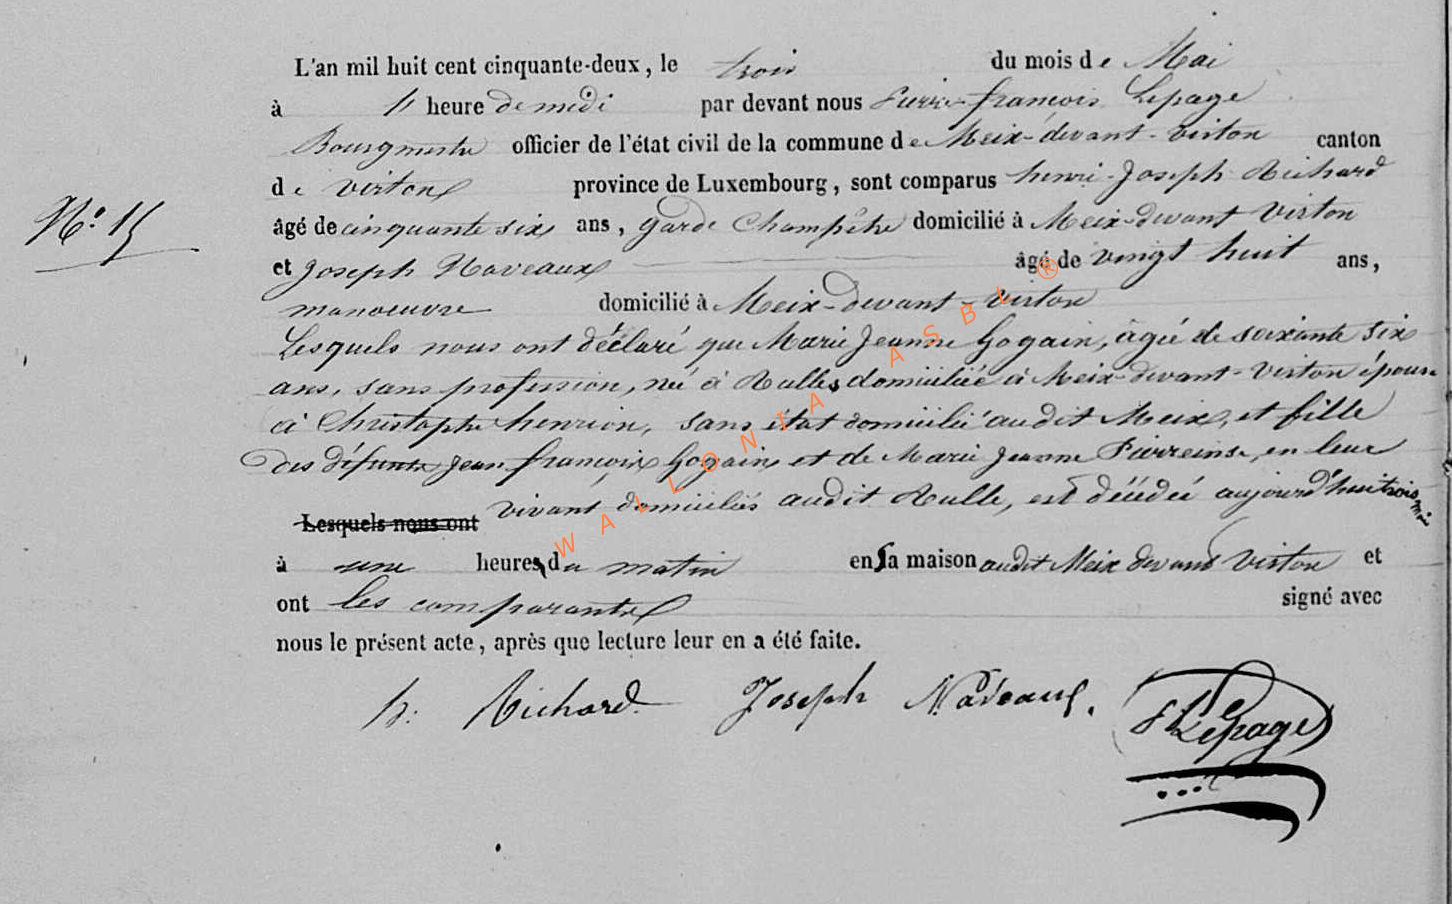 L'an mil huit cent cinquante-deux, le trois du mois de Mai
à heure de midi par devant nous Pierre-françois Lepage
Bourgmestre officier de l'état civil de la commune de Meix-devant-virton canton
de virton province de Luxembourg, sont comparus henri-Joseph Richard
N.° 15
âgé de cinquante six ans, garde Champêtre domicilié à Meix-devant Virton
et Joseph Naveaux âgé de vingt huit ans,
manoeuvre domicilié à Meix-devant-virton
Lesquels nous ont déclaré que Marie Jeanne Gogain, âgée de soixante six
ans, sans profession, né à Rulles domiciliée à Meix-devant-Virton épouse
à Christophe henrion, sans état domicilié audit Meix, et fille
des défunts Jean françois Gogain et de Marie Jeanne en leur
Lesquels nous ont vivant domiciliés audit Rulle, est décédée aujourd'hui trois mai
à une heures du matin en sa maison audit Meix devant Virton et
ont les comparants signé avec
nous le présent acte, après que lecture leur en a été faite.
h: Richard Joseph Naveaux. Lepage
WALLONIA ASBL ®